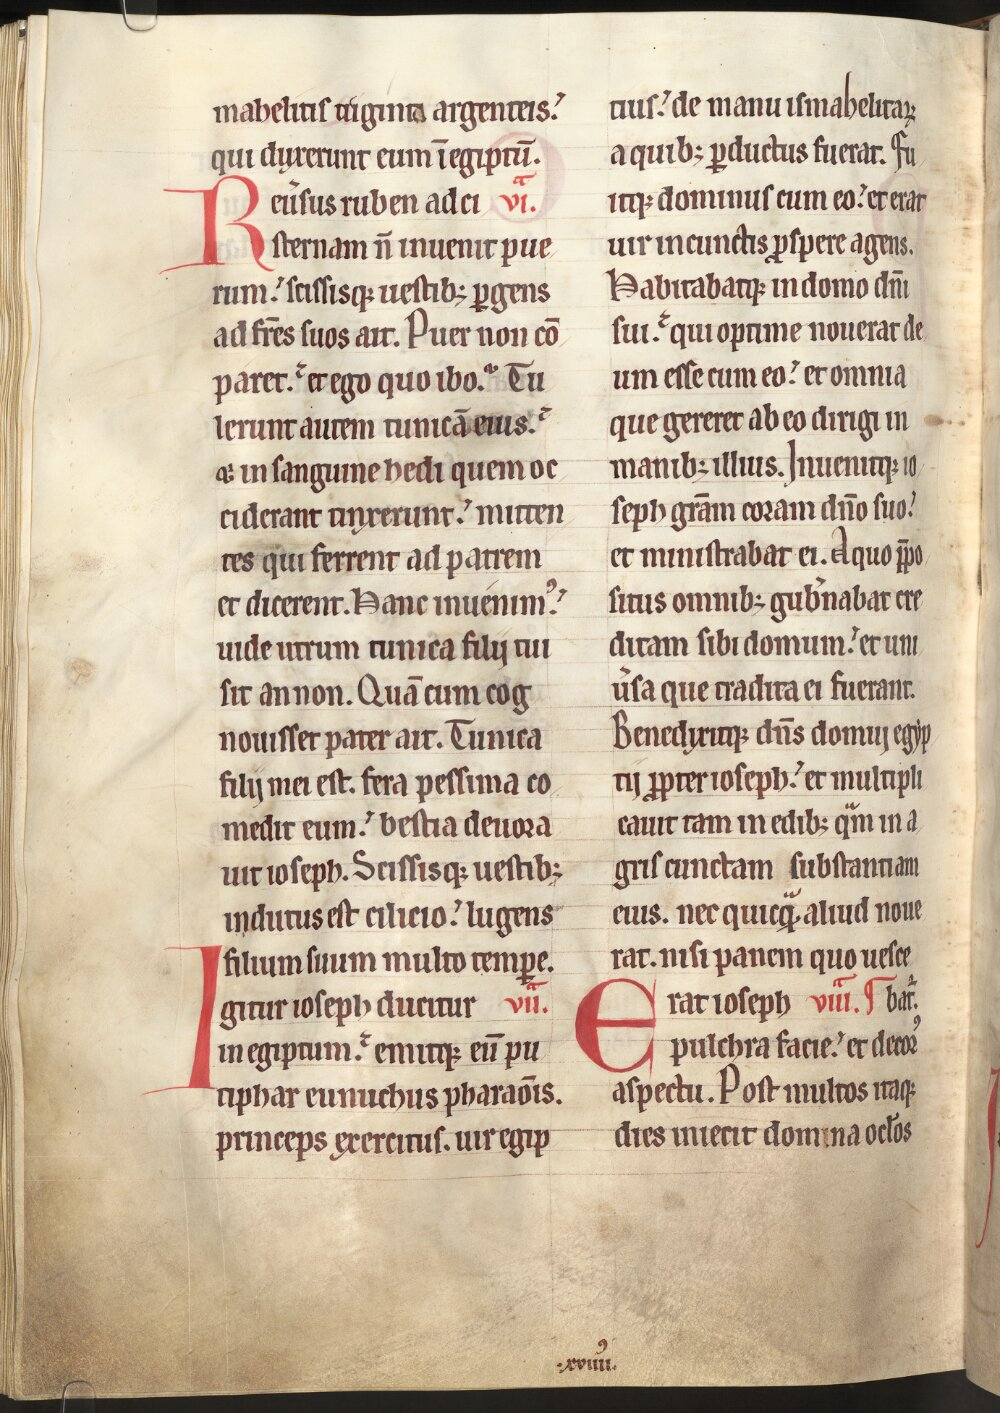 mahelitis triginta argenteis.
qui duxerunt eum ī egiptū.
Reuͥsus ruben ad ci vi.ͣ
sternam n̄ inuenit pue
rum. scissisqꝫ uestibꝫ ꝑgens
ad fr̄es suos ait. Puer non cō
paret. et ego quo ibo. Tu
lerunt autem tunicā eius.
⁊ in sanguine hedi quem oc
ciderant tinxerunt. mitten
tes qui ferrent ad patrem
et dicerent. Hanc inuenimꝰ.
uide utrum tunica filij tui
sit an non. Quā cum cog
nouisset pater ait. Tunica
filij mei est. fera pessima co
medit eum. bestia deuora
uit ioseph. Scissisqꝫ uestibꝫ
indutus est cilicio. lugens
filium suum multo tempꝫe.
Igitur ioseph ducitur vii.ͣ
in egiptum. emitqꝫ eū pu
tiphar eunuchus pharaōis.
princeps exercitus. uir egip
tius. de manu ismahelitaꝝ
a quibꝫ ꝑductus fuerat. Fu
itqꝫ dominus cum eo. et erat
uir in cunctis ꝓspere agens.
Habitabatqꝫ in domo dn̄i
sui. qui optime nouerat de
um esse cum eo. et omnia
que gereret ab eo dirigi in
manibꝫ illius. Inuenitqꝫ io
seph grām coram dn̄o suo.
et ministrabat ei. A quo p̄po
situs omnibꝫ gub̓nabat cre
ditam sibi domum. et uni
u̓sa que tradita ei fuerant.
Benedixitqꝫ dn̄s domuj egyp
tij ꝓpter ioseph. et multipli
cauit tam in edibꝫ qͣm in a
gris cunctam substantiam
eius. nec quicqͣ aliud noue
rat. nisi panem quo uesce
bat᷑.
Erat ioseph viii.ͣ
pulchra facie. et decorꝰ
aspectu. Post multos itaqꝫ
dies iniecit domina oc̄los
.xviiii.ꝰ